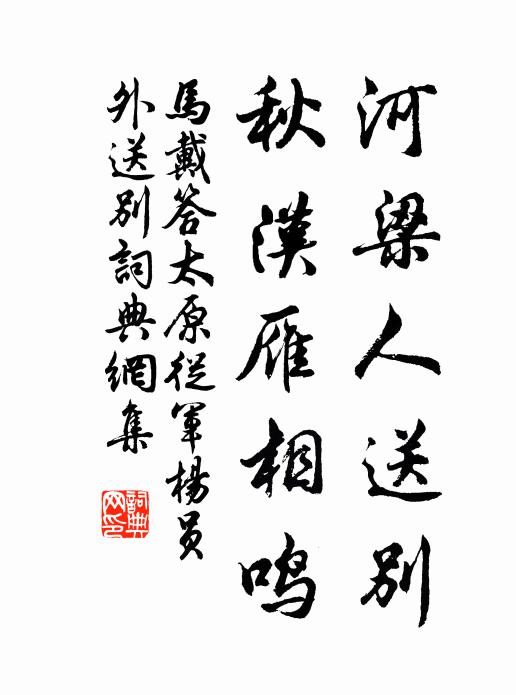 河梁人送别
秋漢雁相鸣
馬戴答太原從軍楊员
外送别詞典網集
詞典
网印